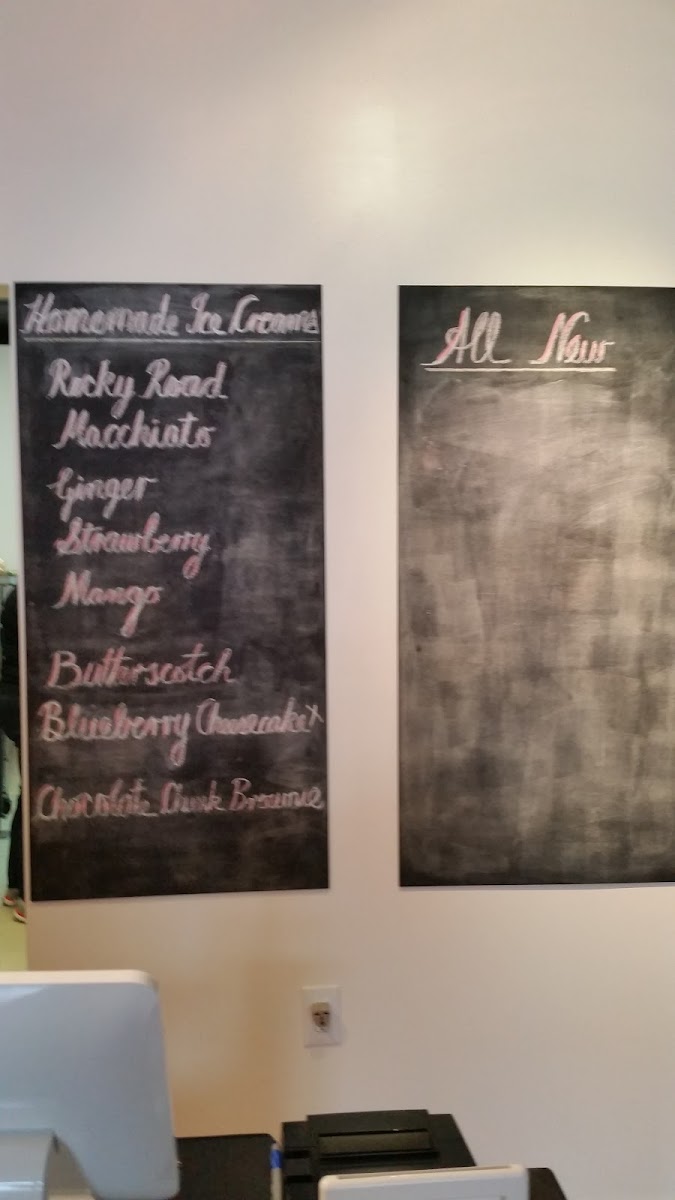 Homemade Ice Creams
Rocky Road
Macchiato
Ginger
Strawberry
Mango
Butterscotch
Blueberry Cheesecake x
Chocolate Chunk Brownie
All New